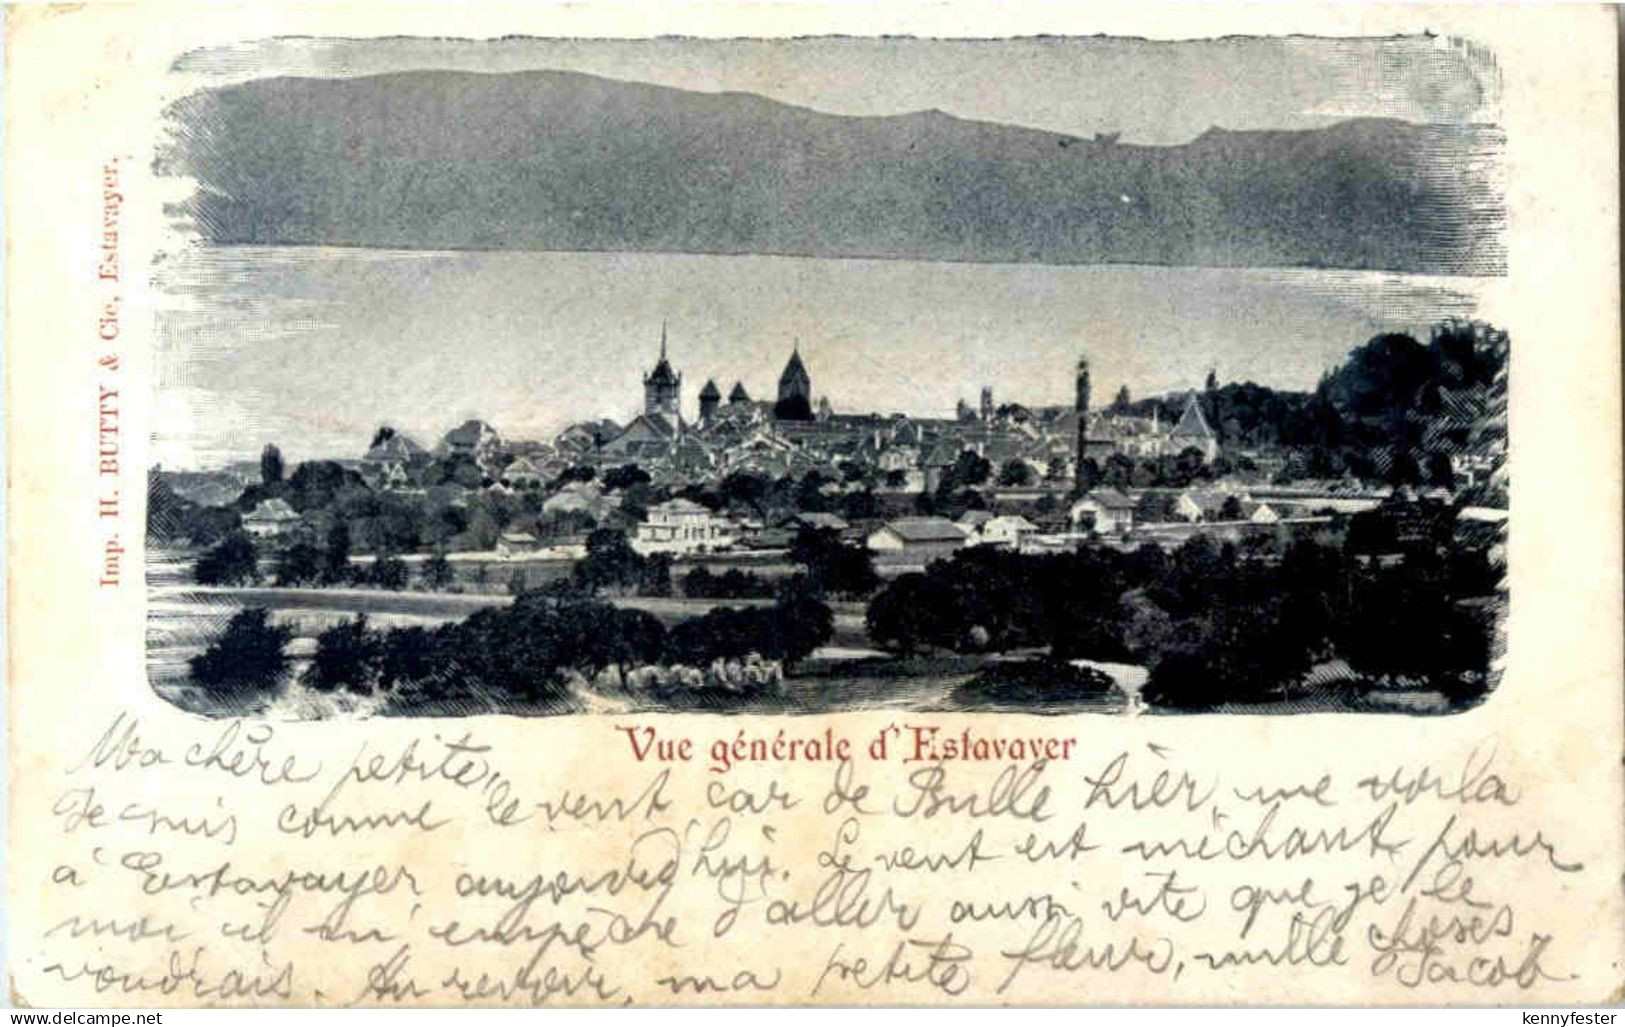 Imp. H. BUTTY & Cie, Estavayer.
Vue générale d'Estavayer
Ma chère petite,
Je suis comme le vent, car de Bulle hièr, me voila
à Estavayer aujourd'hui. Le vent est méchant pour
moi il m'empèche d'aller aussi vite que je le
voudrais. Au revoir, ma petite fleur, mille choses.
Jacob.
www.delcampe.net
kennyfester